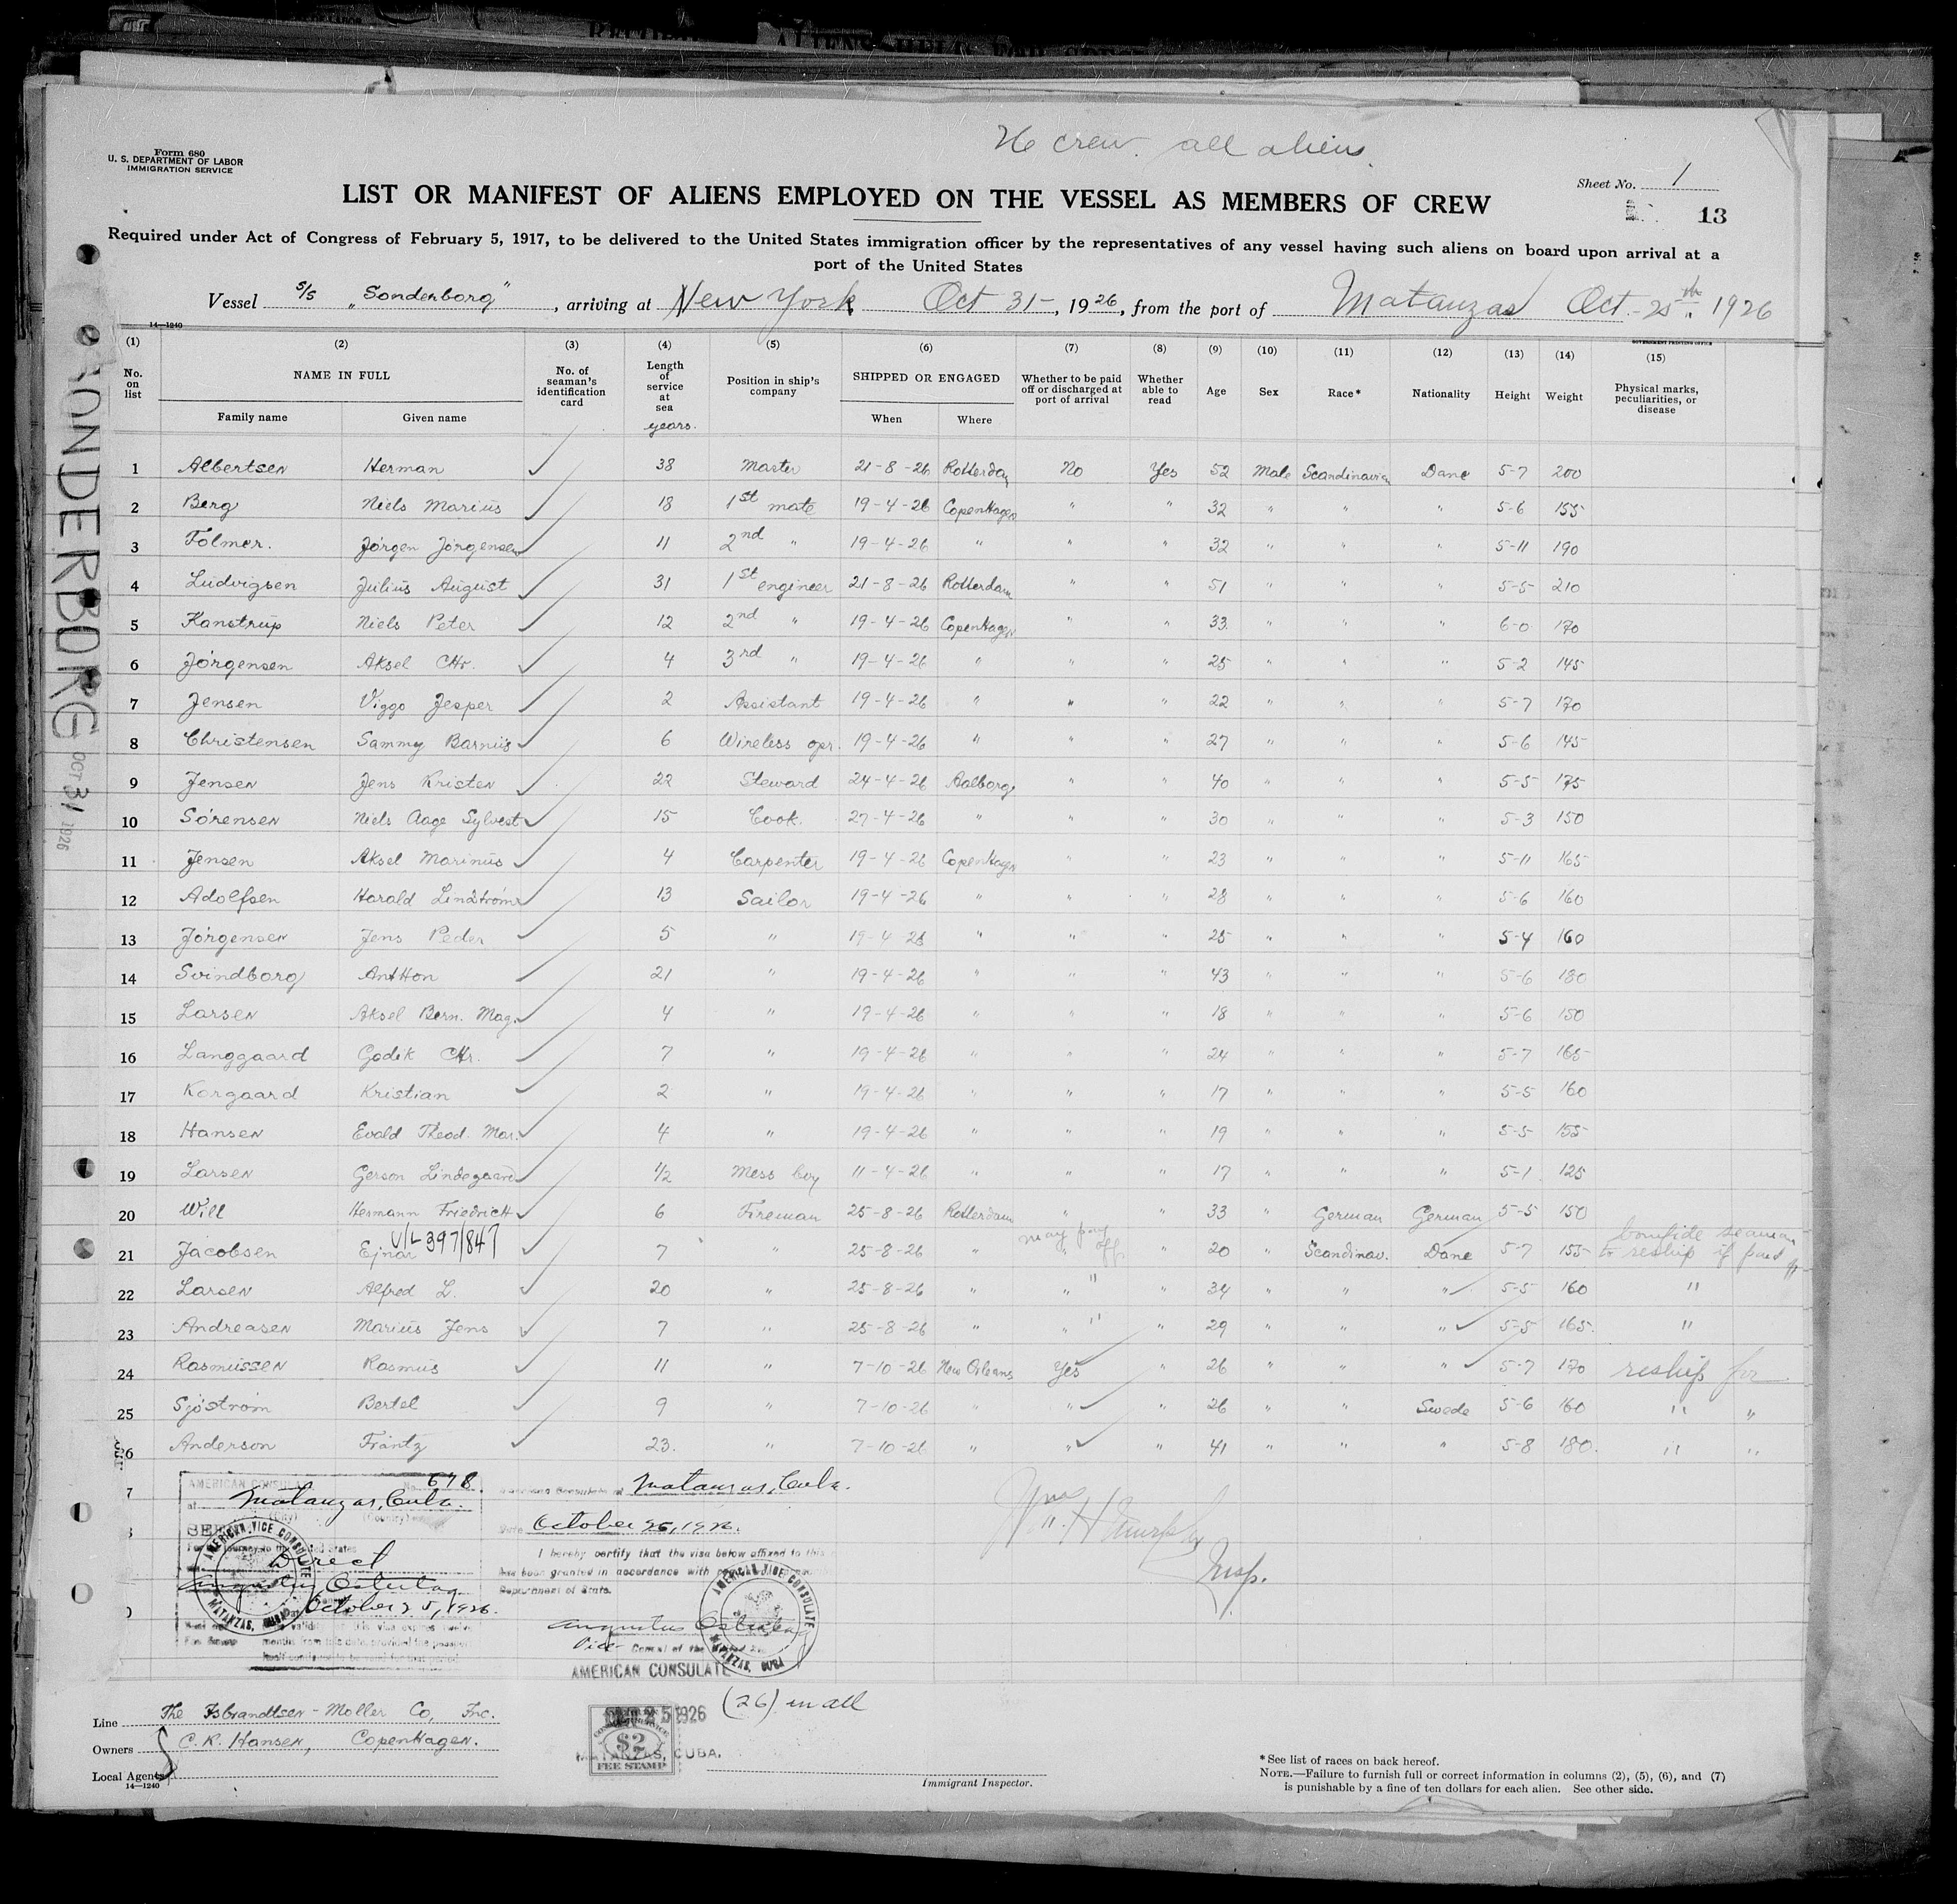 26 crew. all aliens.
Form 680
U. S. DEPARTMENT OF LABOR
IMMIGRATION SERVICE
Sheet No. 1
LIST OR MANIFEST OF ALIENS EMPLOYED ON THE VESSEL AS MEMBERS OF CREW
13
Required under Act of Congress of February 5, 1917, to be delivered to the United States immigration officer by the representatives of any vessel having such aliens on board upon arrival at a
port of the United States
Vessel S/S „Sonderborg", arriving at New York Oct 31-, 1926, from the port of Matanzas Oct.-25th 1926
14—1240
GOVERNMENT PRINTING OFFICE
(1) (2) (3) (4) (5) (6) (7) (8) (9) (10) (11) (12) (13) (14) (15)
No. on list NAME IN FULL Family name Given name No. of seaman's identification card Length of service at sea years. Position in ship's company SHIPPED OR ENGAGED When Where Whether to be paid off or discharged at port of arrival Whether able to read Age Sex Race* Nationality Height Weight Physical marks, peculiarities, or disease
1 Albertsen Herman ✓ 38 Master 21-8-26 Rotterdam No Yes 52 Male Scandinavien Dane 5-7 200
2 Berg Niels Marius ✓ 18 1st mate 19-4-26 Copenhagen " " 32 " " " 5-6 155
3 Folmer. Jörgen Jörgensen ✓ 11 2nd " 19-4-26 " " " 32 " " " 5-11 190
4 Ludvigsen Julius August ✓ 31 1st engineer 21-8-26 Rotterdam " " 51 " " " 5-5 210
5 Kanstrup Niels Peter ✓ 12 2nd " 19-4-26 Copenhagen " " 33. " " " 6-0 170
6 Jörgensen Aksel Chr. ✓ 4 3rd " 19-4-26 " " " 25 " " " 5-2 145
7 Jensen Viggo Jesper ✓ 2 Assistant 19-4-26 " " " 22 " " " 5-7 170
8 Christensen Sammy Barnus ✓ 6 Wireless oper. 19-4-26 " " " 27 " " " 5-6 145
9 Jensen Jens Kristen ✓ 22 Steward 24-4-26 Aalborg " " 40 " " " 5-5 175
10 Sörensen Niels Aage Sylvest ✓ 15 Cook. 27-4-26 " " " 30 " " " 5-3 150
11 Jensen Aksel Marinus ✓ 4 Carpenter 19-4-26 Copenhagen " " 23 " " " 5-11 165
12 Adolfsen Harald Lindström ✓ 13 Sailor 19-4-26 " " " 28 " " " 5-6 160
13 Jörgensen Jens Peder ✓ 5 " 19-4-26 " " " 25 " " " 5-4 160
14 Svindborg Anthon ✓ 21 " 19-4-26 " " " 43 " " " 5-6 180
15 Larsen Aksel Bern. Mag. ✓ 4 " 19-4-26 " " " 18 " " " 5-6 150
16 Langgaard Godik Chr. ✓ 7 " 19-4-26 " " " 24 " " " 5-7 165
17 Korgaard Kristian ✓ 2 " 19-4-26 " " " 17 " " " 5-5 160
18 Hansen Evald Theod. Mar. ✓ 4 " 19-4-26 " " " 19 " " " 5-5 155
19 Larsen Gerson Lindegaard ✓ 1/2 Mess boy 11-4-26 " " " 17 " " " 5-1 125
20 Will Hermann Friedrich ✓ 6 Fireman 25-8-26 Rotterdam " " 33 " German German 5-5 150
V/L 397/847 may pay off. bonafide seaman
21 Jacobsen Ejnar 7 " 25-8-26 " " " 20 " Scandinav. Dane 5-7 155 to reship if paid off
22 Larsen Alfred L. ✓ 20 " 25-8-26 " " " 34 " " " 5-5 160 "
23 Andreasen Marius Jens ✓ 7 " 25-8-26 " " " 29 " " " 5-5 165. "
24 Rasmussen Rasmus ✓ 11 " 7-10-26 New Orleans Yes " 26 " " " 5-7 170 reship for
25 Sjöström Bertel ✓ 9 " 7-10-26 " " " 26 " " Swede 5-6 160 " "
26 Anderson Frantz ✓ 23. " 7-10-26 " " " 41 " " " 5-8 180. " "
AMERICAN CONSULATE No. 678.
at Matanzas, Cuba.
(City) (Country)
SEEN
For the journey to the United States
Direct
Augustus Ostertag
October 25, 1926.
AMERICAN VICE CONSULATE
MATANZAS, CUBA
American Consulate at Matanzas, Cuba.
Date October 25, 1926.
I hereby certify that the visa below affixed to this
has been granted in accordance with
Department of State.
Augustus Ostertag
Vice Consul of the United
AMERICAN VICE CONSULATE
MATANZAS, CUBA
AMERICAN CONSULATE
Wm. H Murphy
Insp.
(26) in all
OCT 25 1926
$2
FEE STAMP
MATANZAS, CUBA.
Line The Isbrandtsen-Moller Co, Inc.
Owners C. K. Hansen, Copenhagen.
Local Agents
14—1240
Immigrant Inspector.
*See list of races on back hereof.
NOTE.—Failure to furnish full or correct information in columns (2), (5), (6), and (7)
is punishable by a fine of ten dollars for each alien. See other side.
SONDERBORG OCT 31 1926